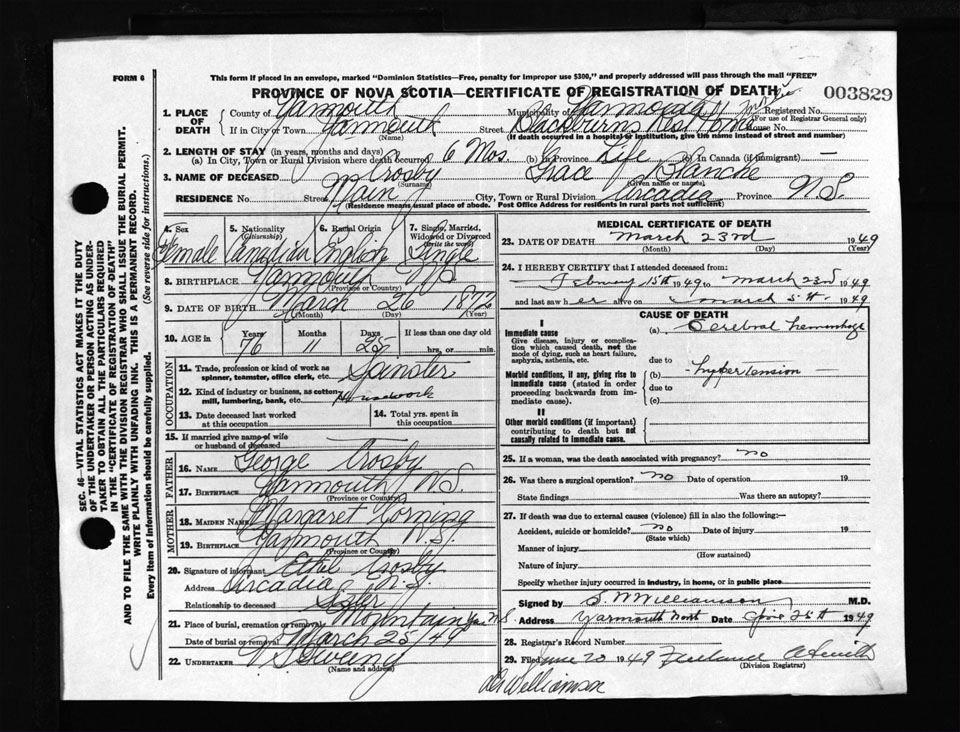 FORM 6
This form if placed in an envelope, marked "Dominion Statistics—Free, penalty for improper use $300," and properly addressed will pass through the mail "FREE"
PROVINCE OF NOVA SCOTIA—CERTIFICATE OF REGISTRATION OF DEATH
003829
1. PLACE OF DEATH
County of Yarmouth
Municipality of Yarmouth
Registered No.
(For use of Registrar General only)
If in City or Town Yarmouth (Name)
Street Blackburns Rest Home House No.
(If death occurred in a hospital or institution, give the name instead of street and number)
2. LENGTH OF STAY (in years, months and days)
(a) In City, Town or Rural Division where death occurred 6 Mos. (b) In Province Life (c) In Canada (if immigrant) —
3. NAME OF DECEASED Crosby (Surname) Grace Blanche (Given name or names)
RESIDENCE No. Street Main City, Town or Rural Division Arcadia Province N.S.
(Residence means usual place of abode. Post Office Address for residents in rural parts not sufficient)
4. Sex Female
5. Nationality (Citizenship) Canadian
6. Racial Origin English
7. Single, Married, Widowed or Divorced (Write the word) Single
8. BIRTHPLACE Yarmouth N.S.
(Province or Country)
9. DATE OF BIRTH March 26 1872
(Month) (Day) (Year)
10. AGE in Years 76 Months 11 Days 25 If less than one day old hrs. or min.
OCCUPATION
11. Trade, profession or kind of work as spinner, teamster, office clerk, etc. Spinster
12. Kind of industry or business, as cotton mill, lumbering, bank, etc. Housework
13. Date deceased last worked at this occupation
14. Total yrs. spent in this occupation
15. If married give name of wife or husband of deceased
FATHER
16. NAME George Crosby
17. BIRTHPLACE Yarmouth N.S.
(Province or Country)
MOTHER
18. MAIDEN NAME Margaret Corning
19. BIRTHPLACE Yarmouth N.S.
(Province or Country)
20. Signature of informant Ethel Crosby
Address Arcadia N.S.
Relationship to deceased Sister
21. Place of burial, cremation or removal Mountain N.S.
Date of burial or removal March 25/49
22. UNDERTAKER V S Sweeny
(Name and address)
MEDICAL CERTIFICATE OF DEATH
23. DATE OF DEATH March 23rd 1949
(Month) (Day) (Year)
24. I HEREBY CERTIFY that I attended deceased from:
February 15th 1949 to March 23rd 1949
and last saw her alive on March 5th 1949
CAUSE OF DEATH
I
Immediate cause
Give disease, injury or complication which caused death, not the mode of dying, such as heart failure, asphyxia, asthenia, etc.
(a) Cerebral hemorrhage
due to
Morbid conditions, if any, giving rise to immediate cause (stated in order proceeding backwards from immediate cause).
(b) hypertension
due to
(c)
II
Other morbid conditions (if important) contributing to death but not causally related to immediate cause.
25. If a woman, was the death associated with pregnancy? no
26. Was there a surgical operation? no Date of operation 19
State findings Was there an autopsy?
27. If death was due to external causes (violence) fill in also the following:—
Accident, suicide or homicide? no Date of injury 19
(State which)
Manner of injury
(How sustained)
Nature of injury
Specify whether injury occurred in industry, in home, or in public place
Signed by S. W Williamson M.D.
Address Yarmouth North Date 25th 1949
28. Registrar's Record Number
29. Filed June 20 1949
(Division Registrar)
Dr Williamson
SEC. 46—VITAL STATISTICS ACT MAKES IT THE DUTY
OF THE UNDERTAKER OR PERSON ACTING AS UNDERTAKER
TO OBTAIN ALL THE PARTICULARS REQUIRED
IN THE "CERTIFICATE OF REGISTRATION OF DEATH"
AND TO FILE THE SAME WITH THE DIVISION REGISTRAR WHO SHALL ISSUE THE BURIAL PERMIT.
WRITE PLAINLY WITH UNFADING INK. THIS IS A PERMANENT RECORD.
Every item of information should be carefully supplied. (See reverse side for instructions.)